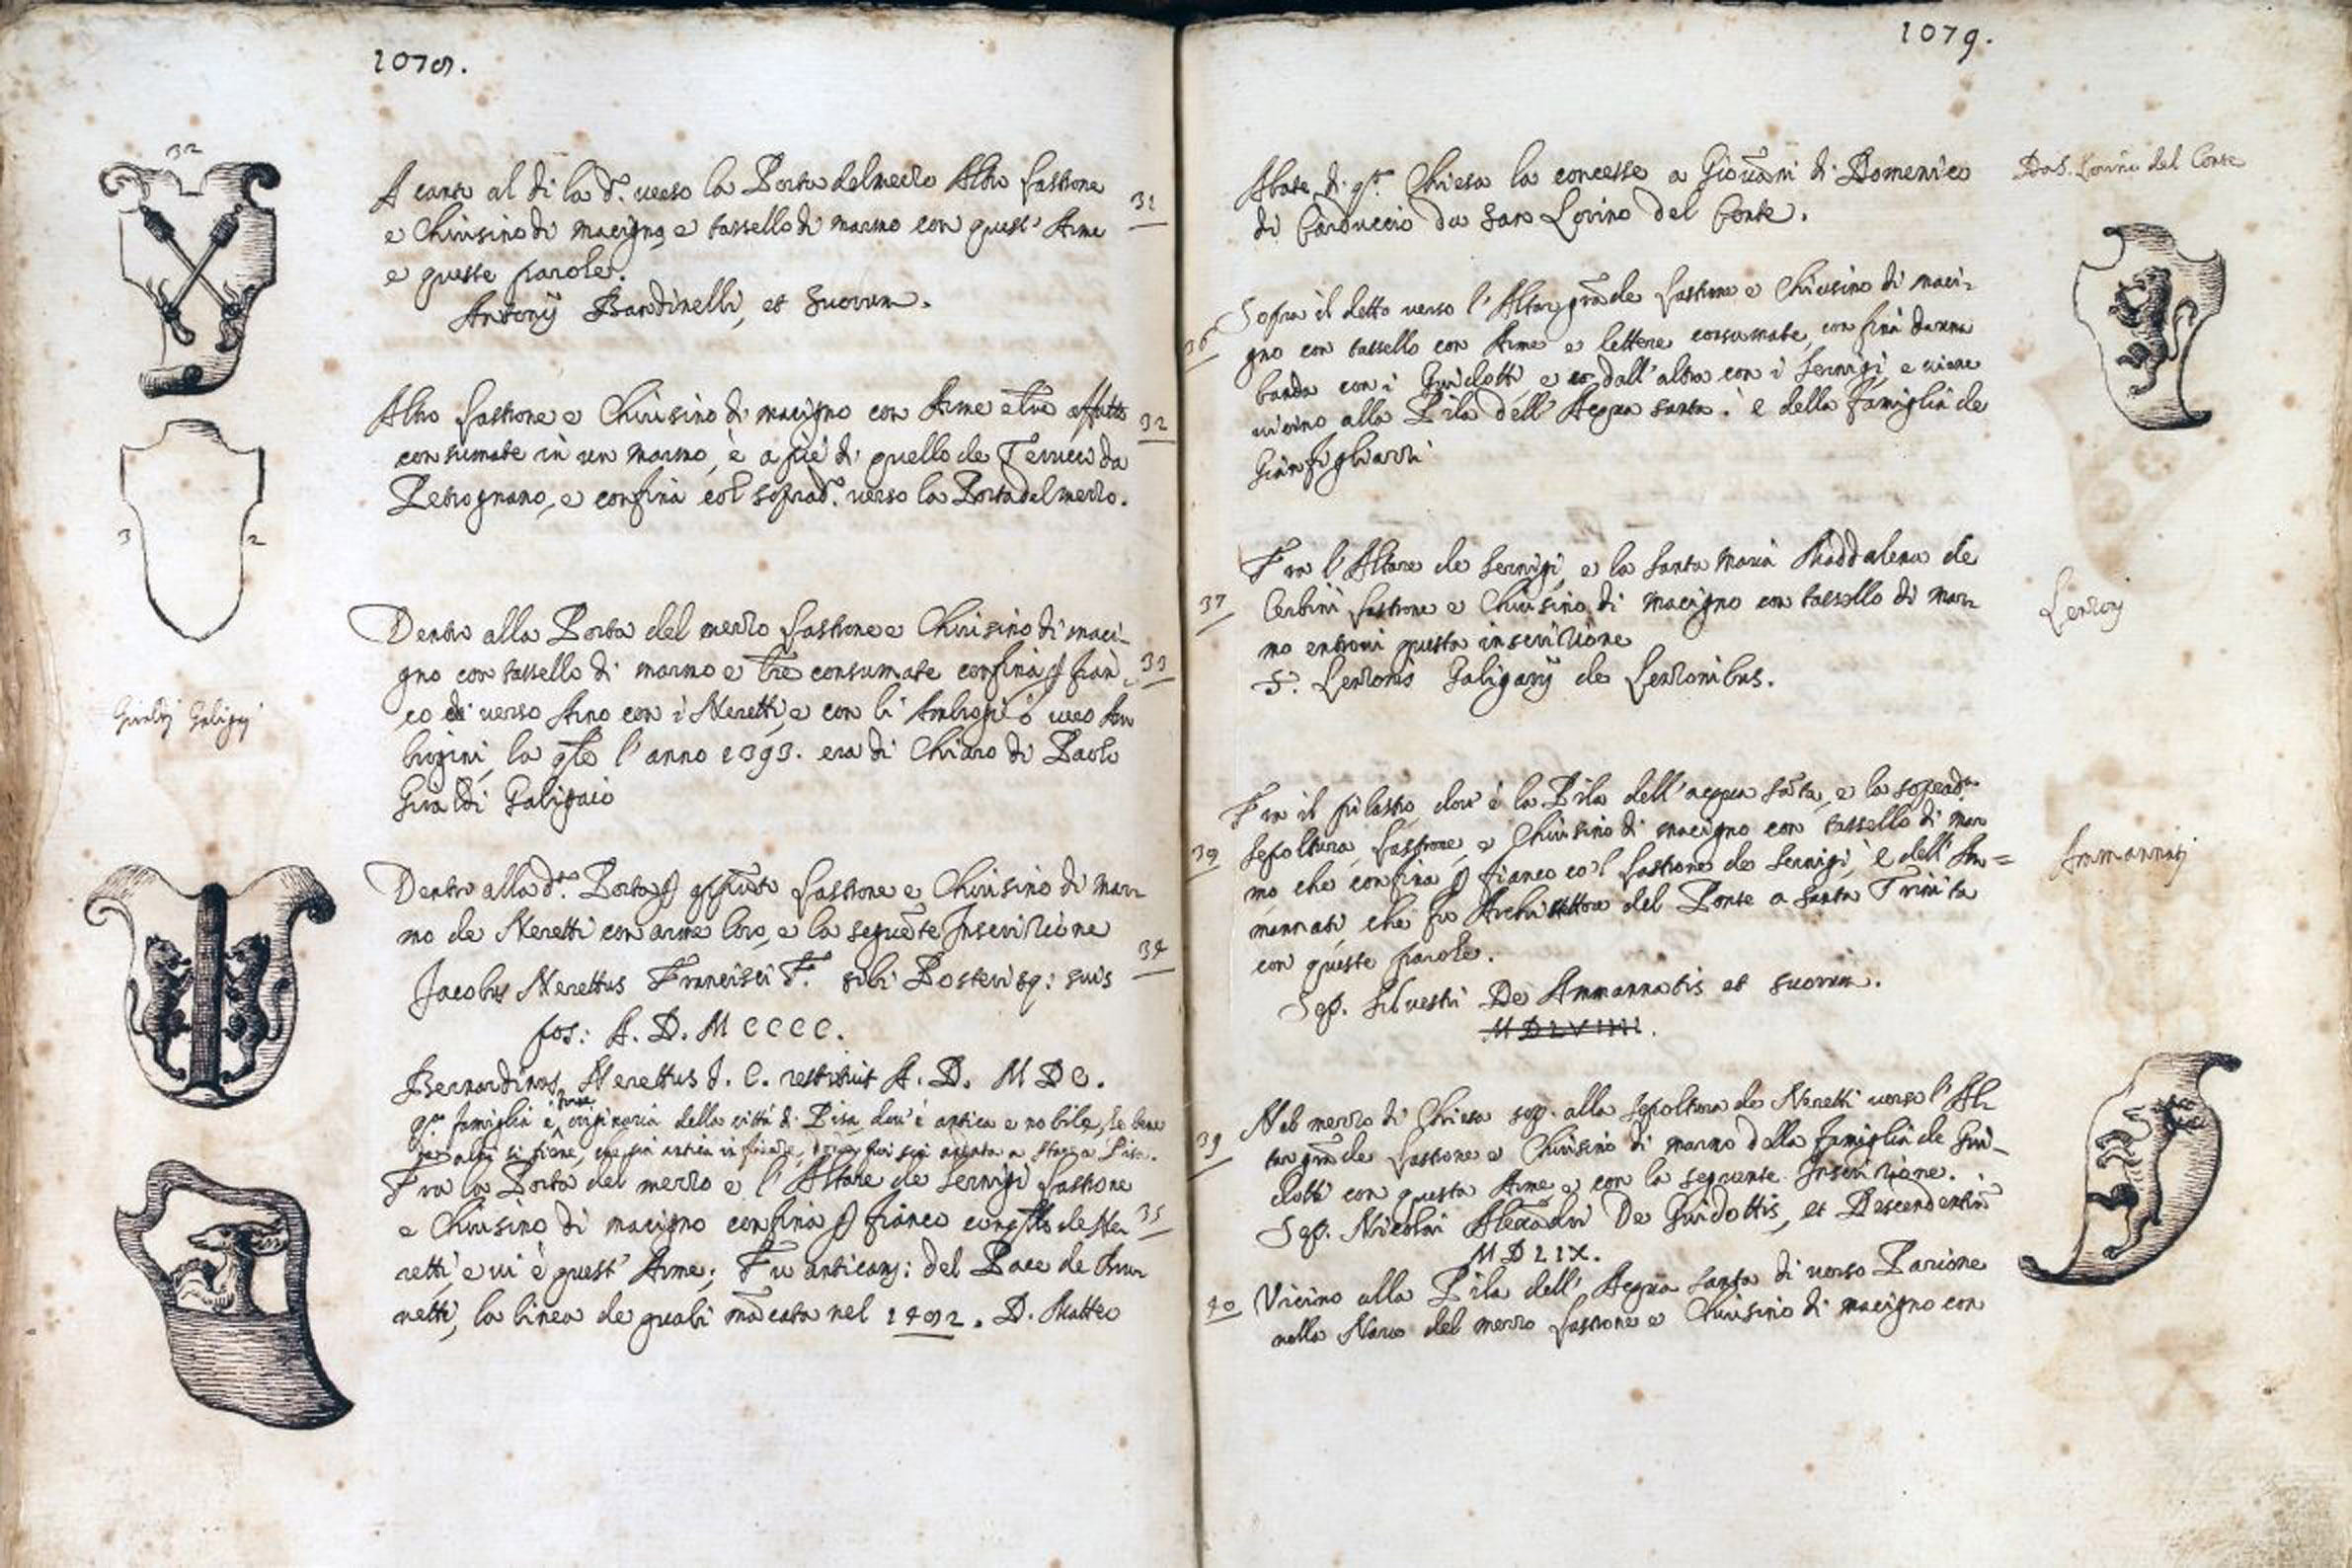 1078.
32
A canto al di là d.º verso la Porta del mezzo Altro lastrone
e Chiusino di macigno, e tassello di marmo con quest' Arme
e queste parole.
31
Antonij Bandinelli, et suorum.
Altro lastrone e Chiusino di macigno con Arme e lre affatto
consumate in un marmo, è a piè di quello de Ferrucci da
Petrognano, e confina col soprad.º verso la Porta del mezzo.
32
3 2
Dentro alla Porta del mezzo lastrone e Chiusino di maci-
gno con tassello di marmo e lre consumate confina p fian-
co di verso Arno con i Neretti, e con li Ambrogi ò vero Am
brogini, la qle l'anno 1393. era di Chiaro di Paolo
Giraldi Galigaio
33
Giraldi Galigai
Dentro alla d.ª Porta p lastrone e Chiusino di mar-
mo de Neretti con arme loro, e la seguete Inscrizione
Jacobus Nerettus Francisci F. sibi Posterisq: suis
34
pos: A. D. M CCCC.
Bernardinus Nerettus J. C. restituit A. D. MDC.
qª famiglia è forse originaria della città di Pisa dov'è antica e nobile, se bene
Fra la Porta del mezzo e l'Altare de Sernigi lastrone
e Chiusino di macigno confina p fianco con qllo de Ne-
retti, e vi è quest' Arme; Fu anticam: del Pace de
netti, la linea de quali macata nel 1492. D. Matteo
35
1079.
Abate di qª Chiesa la concesse a Giovani di Domenico
di Carduccio da San Lovino del Conte.
Da S. Lovino del Conte
Sopra il detto verso l'Altar grade lastrone e Chiusino di maci-
gno con tassello con Arme e lettere consumate, confina da una
banda con i Guidotti, e dall'altra con i Sernigi, e viene
vicino alla Pila dell' Acqua santa. è della famiglia de
Gianfigliazzi
36
Fra l'Altare de Sernigi, e la Santa Maria Maddalena de
Cerbini lastrone e Chiusino di macigno con tassello di mar-
mo entrovi questa inscrizione
S. Lenzonis Galigarij de Lenzonibus.
37
Lenzoni
Fra il pilastro, dov'è la Pila dell'acqua sata, e la soprad.ª
sepoltura, lastrone, e Chiusino di macigno con tassello di mar
mo che confina p fianco co'l lastrone de Sernigi, è dell' Am=
mannati che fu Architettore del Ponte a Santa Trinita
con queste parole.
38
Ammannati
Sep. Silvestri De Ammannatis et suorum.
MDLVIIII.
Nel mezzo di Chiesa sop. alla sepoltura de Neretti verso l'Al-
tar grade lastrone e Chiusino di marmo della famiglia de Gui-
dotti con questa Arme e con la seguente Inscrizione.
39
Sep. Nicolai Alexadri De Guidottis, et Descendentiu
MDLIX.
40 Vicino alla Pila dell' Acqua Santa di verso Parione
nella Nave del mezzo lastrone e Chiusino di macigno con